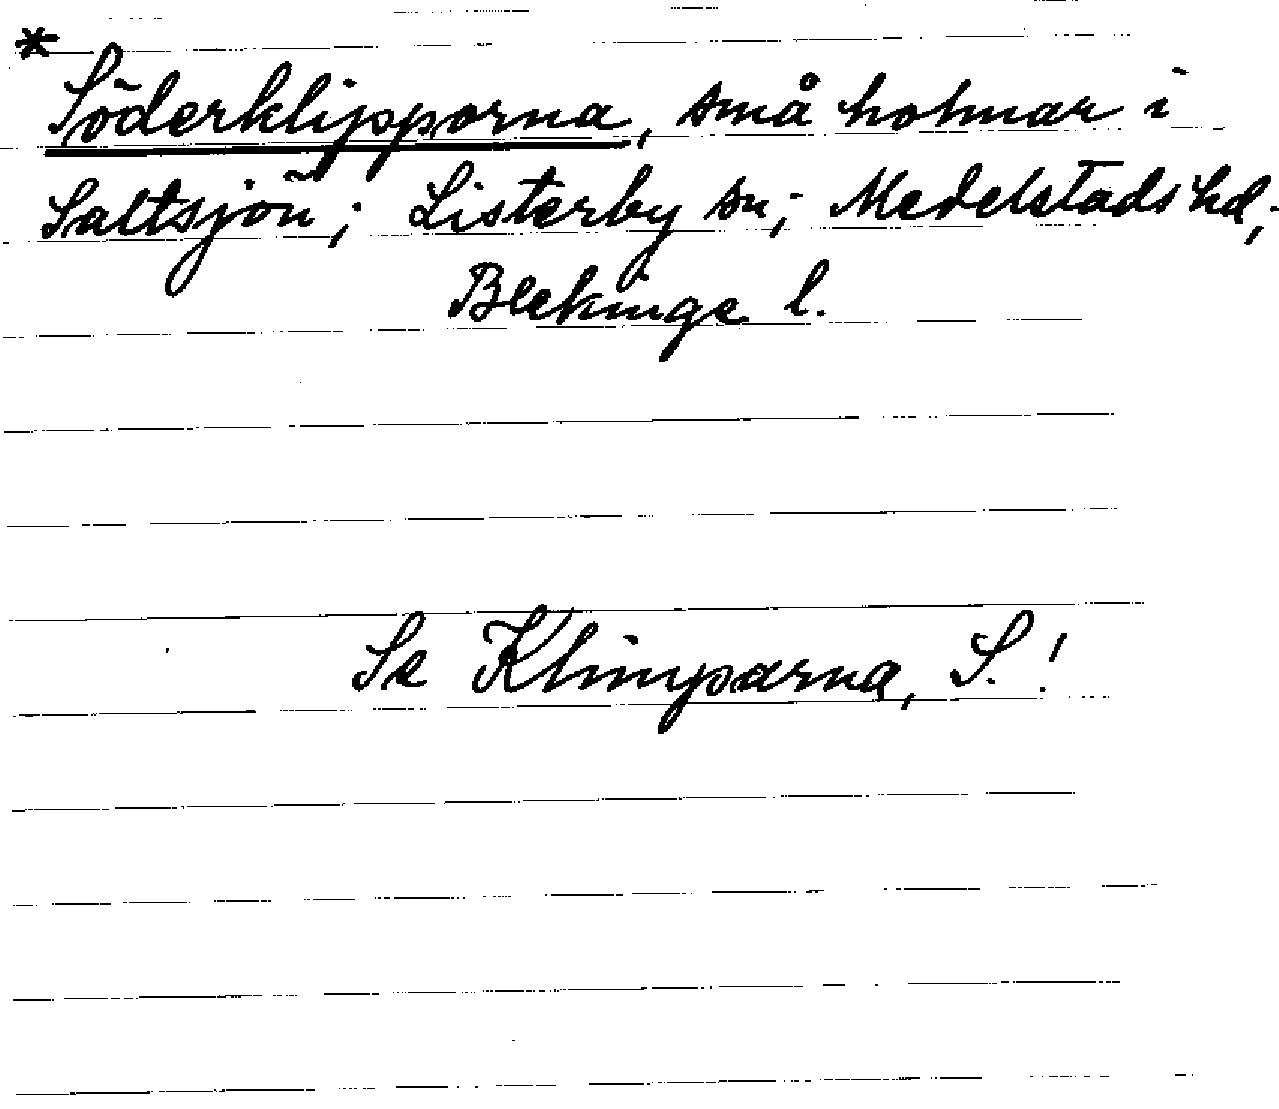 * Söderklipporna, små holmar i
Saltsjön; Listerby sn; Medelstads hd;
Blekinge l.
Se Klimparna, S.!